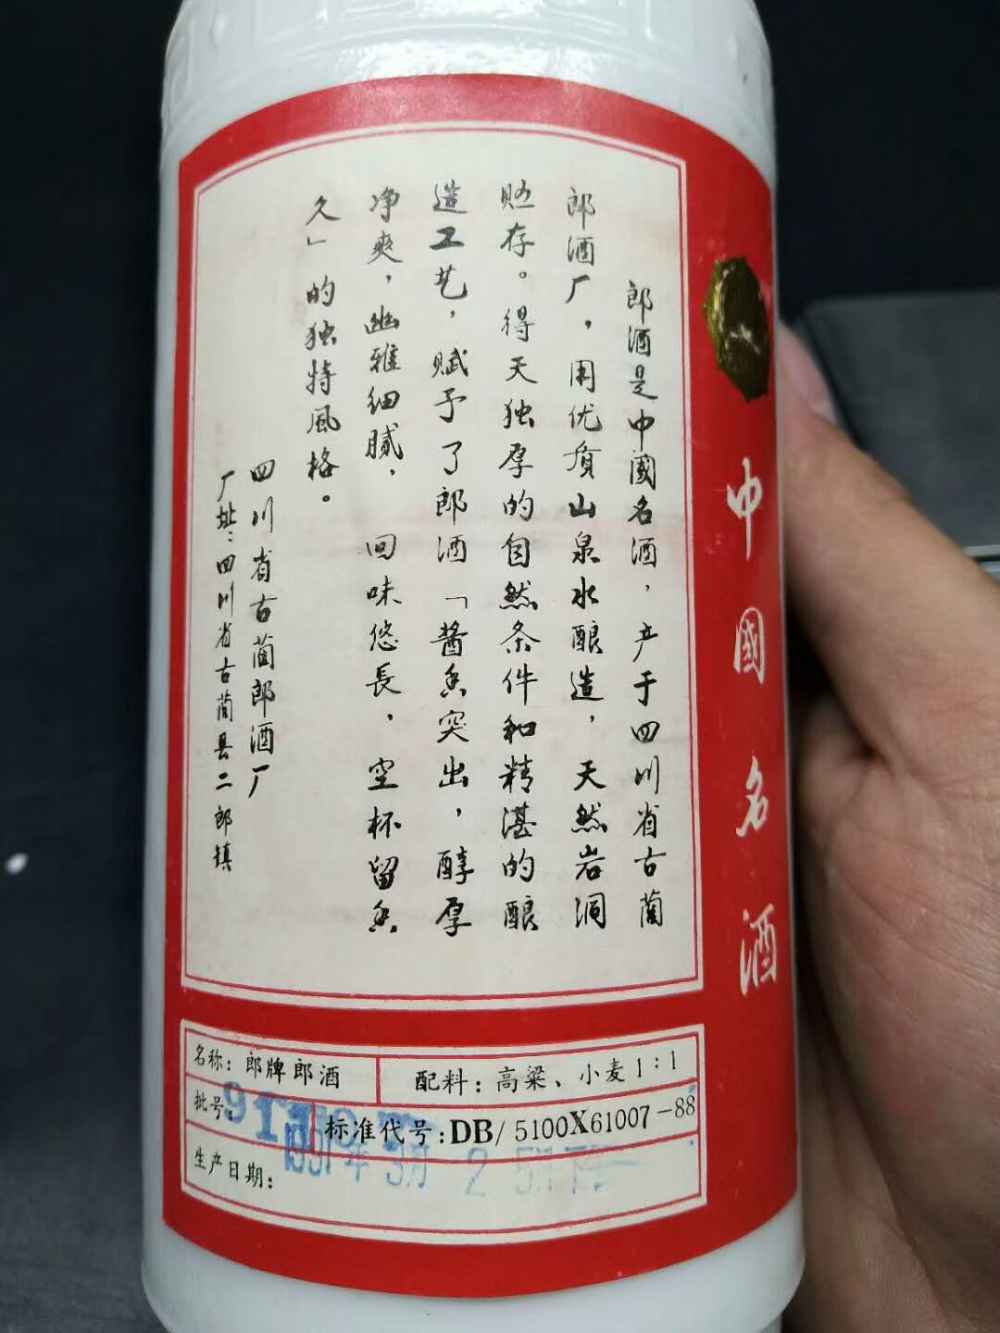 郎酒是中國名酒，产于四川省古蔺
郎酒厂，用优质山泉水酿造，天然岩洞
贮存。得天独厚的自然条件和精湛的酿
造工艺，赋予了郎酒「酱香突出，醇厚
净爽，幽雅细腻，回味悠長，空杯留香
久」的独特風格。
四川省古蔺郎酒厂
厂址：四川省古蔺县二郎镇
中國名酒
名称：郎牌郎酒
配料：高粱、小麦1：1
批号：
标准代号：DB/5100X61007-88
生产日期：
1991年3月25